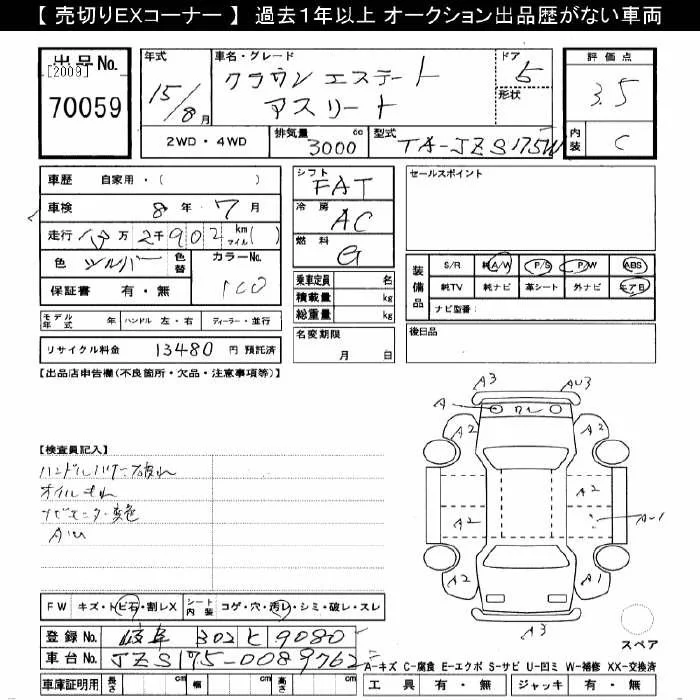 【 売切りEXコーナー 】 過去1年以上 オークション出品歴がない車両
出品No.
[2009]
70059
年式
15/8月
車名・グレード
クラウン エステート
アスリート
ドア
5
形状
評価点
3.5
内装
C
2WD・4WD
排気量
3000 cc
型式
TA-JZS175W
車歴 自家用・( )
車検 8年7月
走行 万2千902 km マイル( )
色 シルバー
色替
カラーNo.
1C0
保証書 有・無
シフト
FAT
冷房
AC
燃料
G
乗車定員 名
積載量 kg
総重量 kg
セールスポイント
装備品
S/R 純A/W P/S P/W ABS
純TV 純ナビ 革シート 外ナビ エアB
ナビ型番:
モデル年式 年 ハンドル 左・右 ディーラー・並行
名変期限
月 日
後日品
リサイクル料金 13480 円 預託済
【出品店申告欄(不良箇所・欠品・注意事項等)】
A3
AU3
A
ワレ
A2
A2
A2
A2
A2
A-1
A2
A1
A3
【検査員記入】
ハンドルバー 破れ
オイルもれ
ナビモニター変色
AU
FW キズ・トビ石・割レX シート内装 コゲ・穴・汚レ・シミ・破レ・スレ
スペア
登録No. 岐阜 302 ヒ 9080
車台No. JZS175-0089762
A-キズ C-腐食 E-エクボ S-サビ U-凹ミ W-補修 XX-交換済
車庫証明用 長さ cm 幅 cm 高さ cm
工具 有・無 ジャッキ 有・無